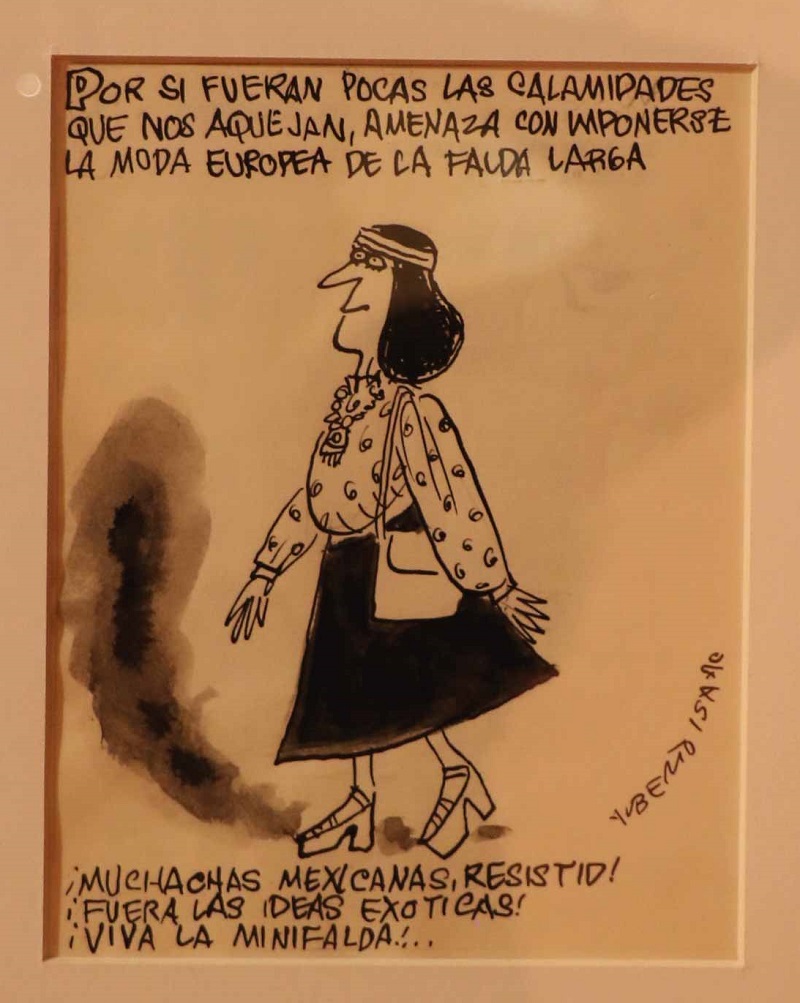 POR SI FUERAN POCAS LAS CALAMIDADES
QUE NOS AQUEJAN, AMENAZA CON IMPONERSE
LA MODA EUROPEA DE LA FALDA LARGA
YLBERTO ISAAC
¡MUCHACHAS MEXICANAS, RESISTID!
¡FUERA LAS IDEAS EXOTICAS!
¡VIVA LA MINIFALDA!...